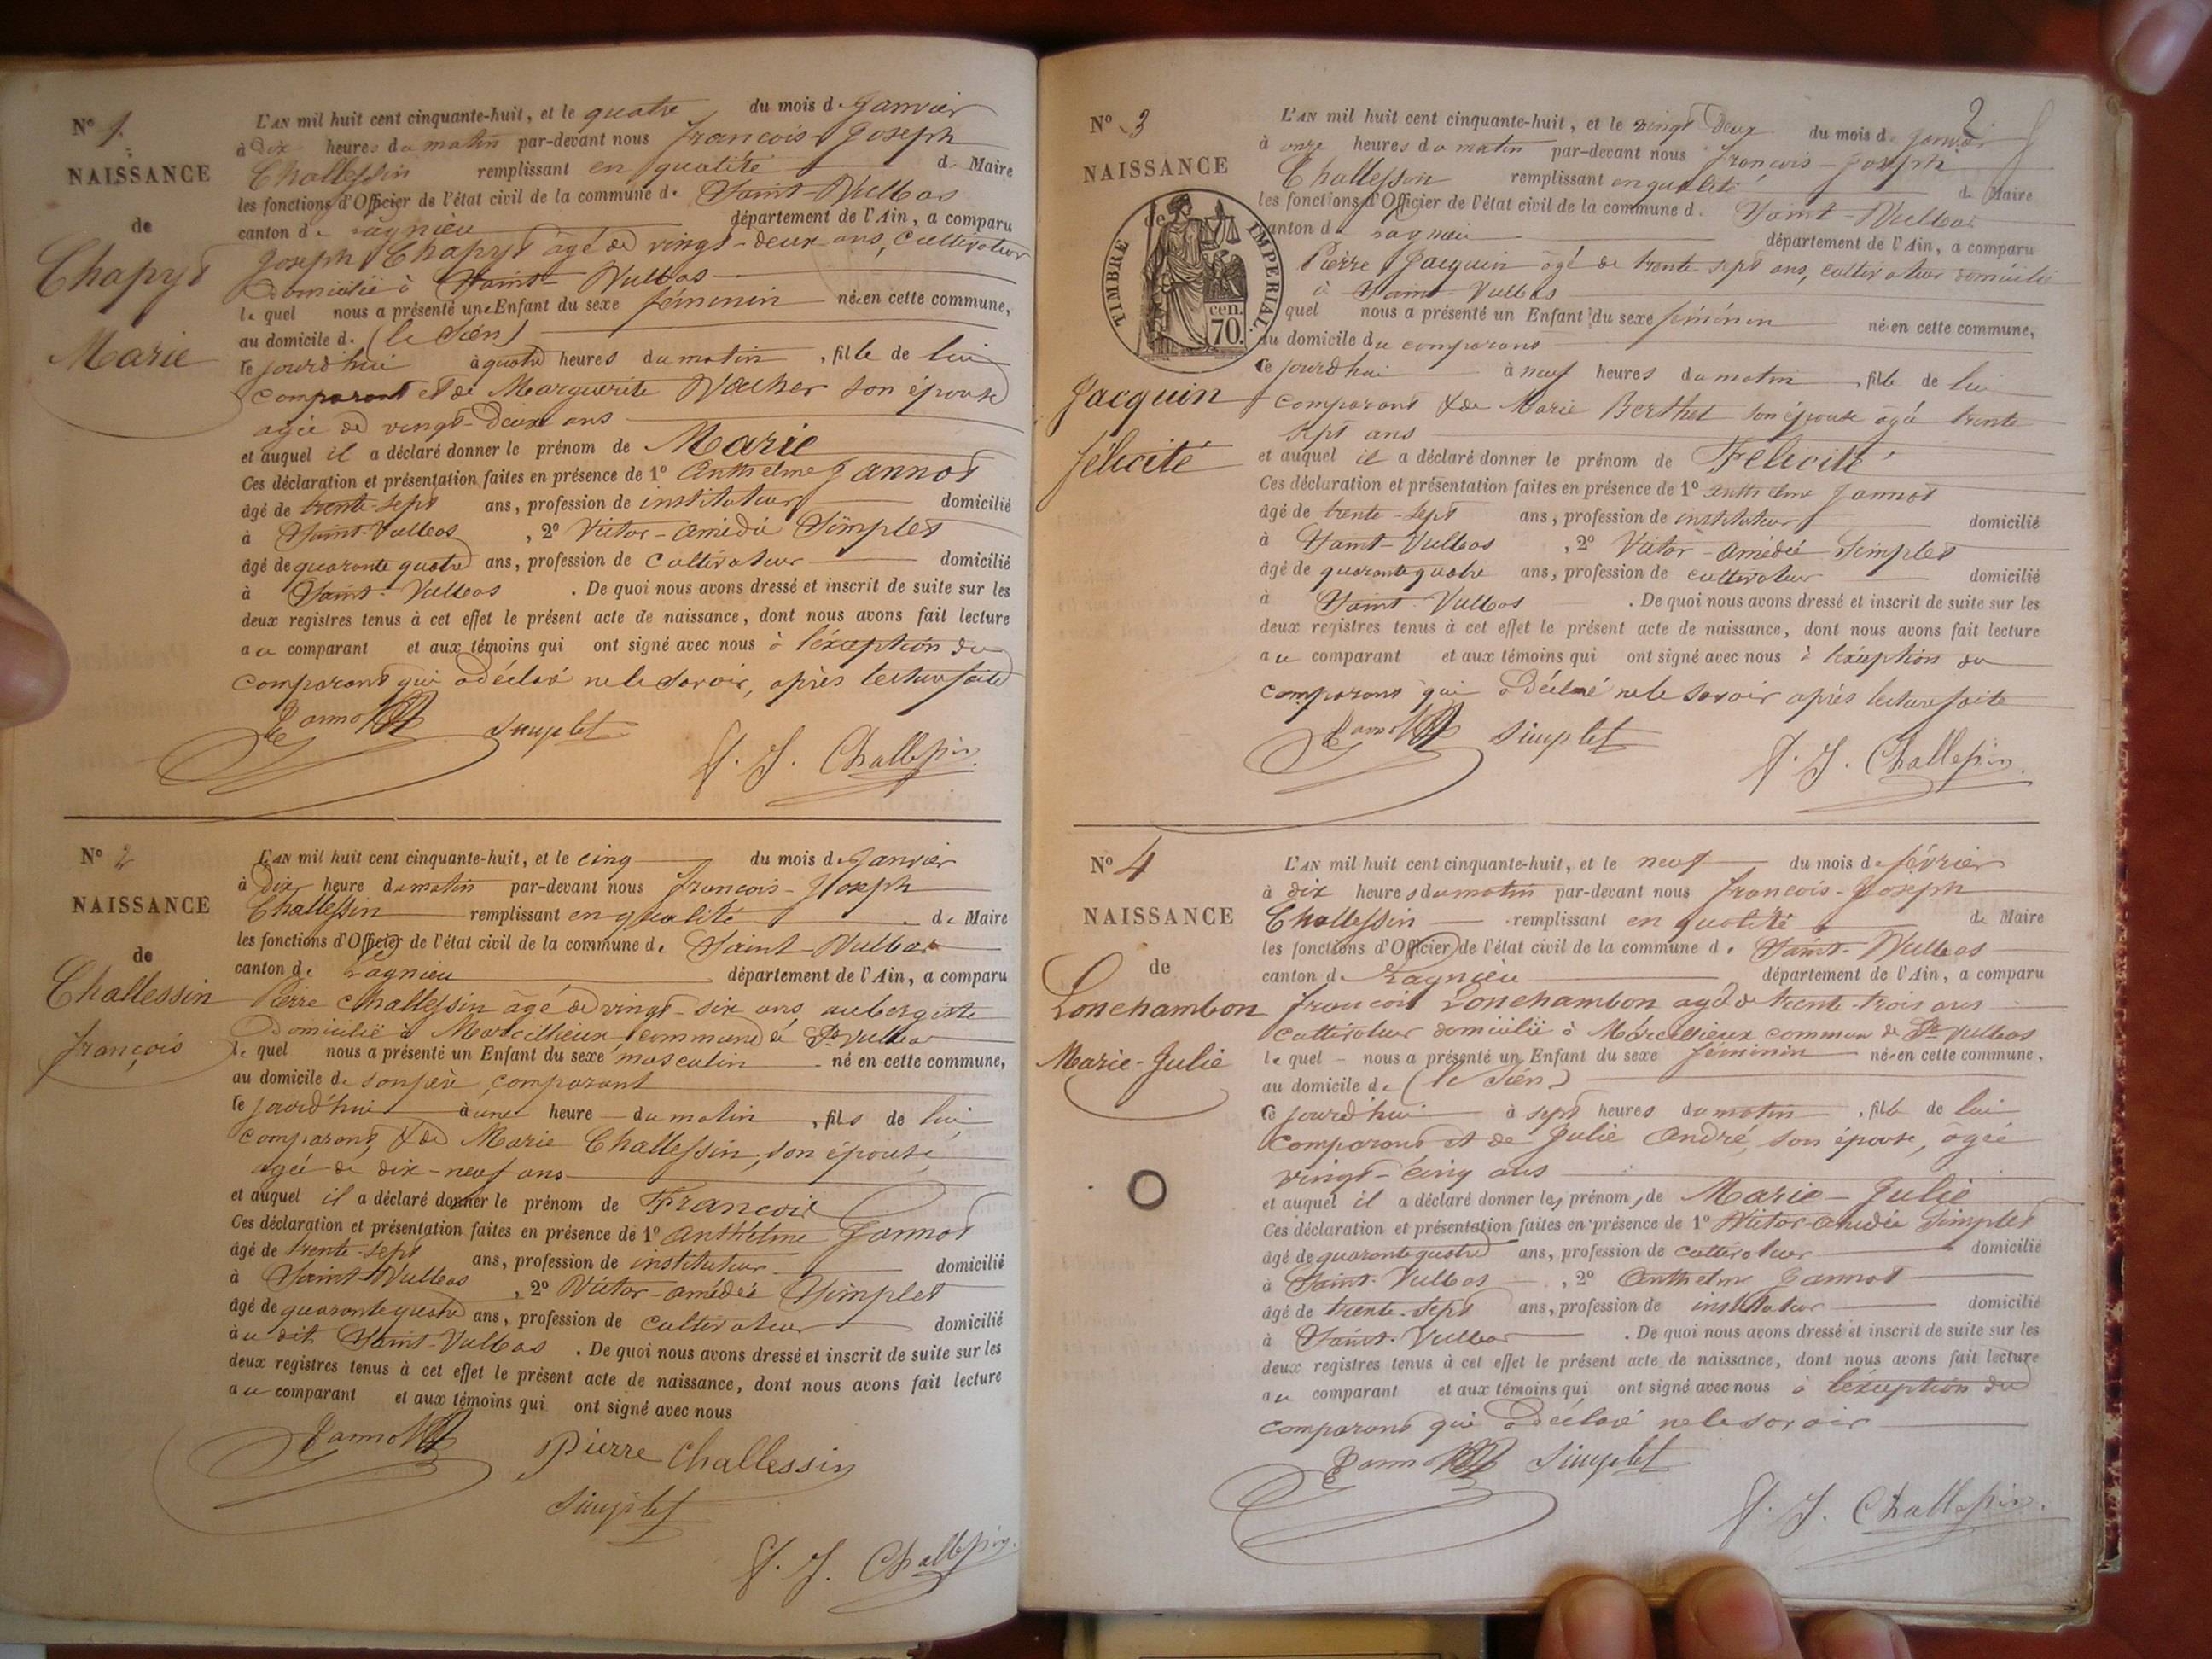 N° 1.
NAISSANCE
de
Chapyt
Marie
L'AN mil huit cent cinquante-huit, et le quatre du mois de Janvier
à Dix heures du matin par-devant nous François Joseph
Challessin remplissant en qualité de Maire
les fonctions d'Officier de l'état civil de la commune de Saint-Vulbas
canton de Lagnieu département de l'Ain, a comparu
Joseph Chapyt âgé de vingt-deux ans, cultivateur
Domicilié à Saint-Vulbas
lequel nous a présenté une Enfant du sexe féminin née en cette commune,
au domicile de (le Sien)
ce jourd'hui à quatre heures du matin, fille de lui
comparant et de Marguerite Vacher son épouse
agée de vingt-Deux ans
et auquel il a déclaré donner le prénom de Marie
Ces déclaration et présentation faites en présence de 1° Anthelme Jannot
âgé de trente-sept ans, profession de instituteur domicilié
à Saint-Vulbas, 2° Victor-amédé Simplet
âgé de quarante quatre ans, profession de Cultivateur domicilié
à Saint-Vulbas. De quoi nous avons dressé et inscrit de suite sur les
deux registres tenus à cet effet le présent acte de naissance, dont nous avons fait lecture
au comparant et aux témoins qui ont signé avec nous à l'éxception du
comparant qui a déclaré ne le savoir, après lecture faite
Jannot Simplet
F. J. Challessin
N° 2
NAISSANCE
de
Challessin
françois
L'AN mil huit cent cinquante-huit, et le cinq du mois de Janvier
à Dix heure du matin par-devant nous François-Joseph
Challessin remplissant en qualité de Maire
les fonctions d'Officier de l'état civil de la commune de Saint-Vulbas
canton de Lagnieu département de l'Ain, a comparu
Pierre Challessin âgé de vingt-six ans aubergiste
Domicilié à Marcillieux commune de St Vulbas
lequel nous a présenté un Enfant du sexe masculin né en cette commune,
au domicile de son père, comparant
ce jourd'hui à une heure du matin, fils de lui
comparant, & de Marie Challessin, son épouse,
agée de dix-neuf ans
et auquel il a déclaré donner le prénom de François
Ces déclaration et présentation faites en présence de 1° Anthelme Jannot
âgé de trente-sept ans, profession de instituteur domicilié
à Saint-Vulbas, 2° Victor-amédée Simplet
âgé de quarante quatre ans, profession de cultivateur domicilié
au dit Saint-Vulbas. De quoi nous avons dressé et inscrit de suite sur les
deux registres tenus à cet effet le présent acte de naissance, dont nous avons fait lecture
au comparant et aux témoins qui ont signé avec nous
Jannot Pierre Challessin
Simplet
F. J. Challessin
2
N° 3
NAISSANCE
de
TIMBRE IMPERIAL.
cen. 70.
Jacquin
félicité
L'AN mil huit cent cinquante-huit, et le vingt Deux du mois de Janvier
à onze heures du matin par-devant nous François-Joseph
Challessin remplissant en qualité de Maire
les fonctions d'Officier de l'état civil de la commune de Saint-Vulbas
canton de Lagnieu département de l'Ain, a comparu
Pierre Jacquin âgé de trente sept ans, cultivateur domicilié
à Saint-Vulbas
quel nous a présenté un Enfant du sexe féminin né en cette commune,
au domicile du comparant
ce jourd'hui à neuf heures du matin, fille de lui
comparant & de Marie Berthet son épouse agée trente
sept ans
et auquel il a déclaré donner le prénom de Félicité
Ces déclaration et présentation faites en présence de 1° Anthelme Jannot
âgé de trente-sept ans, profession de instituteur domicilié
à Saint-Vulbas, 2° Victor-amédée Simplet
âgé de quarante quatre ans, profession de cultivateur domicilié
à Saint-Vulbas. De quoi nous avons dressé et inscrit de suite sur les
deux registres tenus à cet effet le présent acte de naissance, dont nous avons fait lecture
au comparant et aux témoins qui ont signé avec nous à l'éxception du
comparant qui a Déclaré ne le savoir après lecture faite
Jannot Simplet
F. J. Challessin
N° 4
NAISSANCE
de
Lonchambon
Marie-Julie
L'AN mil huit cent cinquante-huit, et le neuf du mois de février
à dix heures du matin par-devant nous François-Joseph
Challessin remplissant en qualité de Maire
les fonctions d'Officier de l'état civil de la commune de Saint-Vulbas
canton de Lagnieu département de l'Ain, a comparu
françois Lonchambon agé de trente-trois ans
cultivateur domicilié à Marcillieux commune de St Vulbas
lequel nous a présenté un Enfant du sexe féminin née en cette commune,
au domicile de (le Sien)
ce jourd'hui à sept heures du matin, fille de lui
comparant et de Julie André, son épouse, âgée
vingt-cinq ans
et auquel il a déclaré donner les prénoms de Marie-Julie
Ces déclaration et présentation faites en présence de 1° Victor-amédée Simplet
âgé de quarante quatre ans, profession de cultivateur domicilié
à Saint-Vulbas, 2° Anthelme Jannot
âgé de trente-sept ans, profession de instituteur domicilié
à Saint-Vulbas. De quoi nous avons dressé et inscrit de suite sur les
deux registres tenus à cet effet le présent acte de naissance, dont nous avons fait lecture
au comparant et aux témoins qui ont signé avec nous à l'éxception du
comparant qui a déclaré ne le savoir
Jannot Simplet
F. J. Challessin.